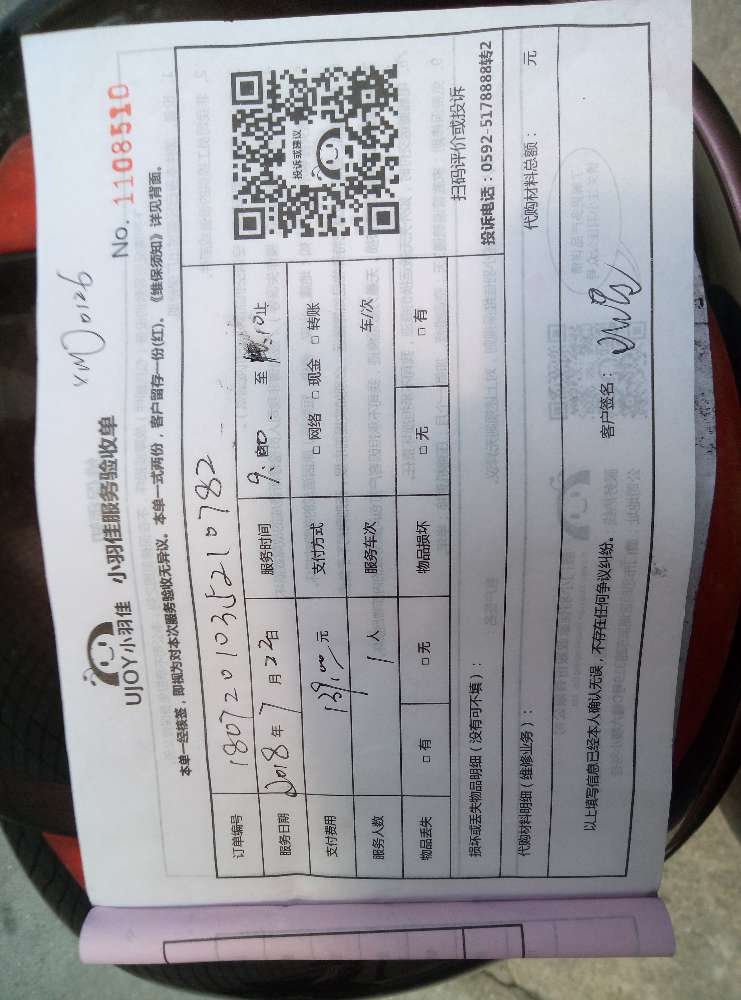 XM00126
UJOY小羽佳 小羽佳服务验收单
No. 1108510
本单一经核签，即视为对本次服务验收无异议。本单一式两份，客户留存一份(红)。《维保须知》详见背面。
订单编号 1807201035210782
服务日期 2018年7月22日 服务时间 9:00 至 10:10止
支付费用 139.00元 支付方式 □ 网络 □ 现金 □ 转账
服务人数 1人 服务车次 车/次
物品丢失 □ 有 □ 无 物品损坏 □ 无 □ 有
投诉或建议
扫码评价或投诉
投诉电话：0592-5178888转2
损坏或丢失物品明细（没有可不填）：
代购材料明细（维修业务）： 代购材料总额： 元
以上填写信息已经本人确认无误，不存在任何争议纠纷。 客户签名：